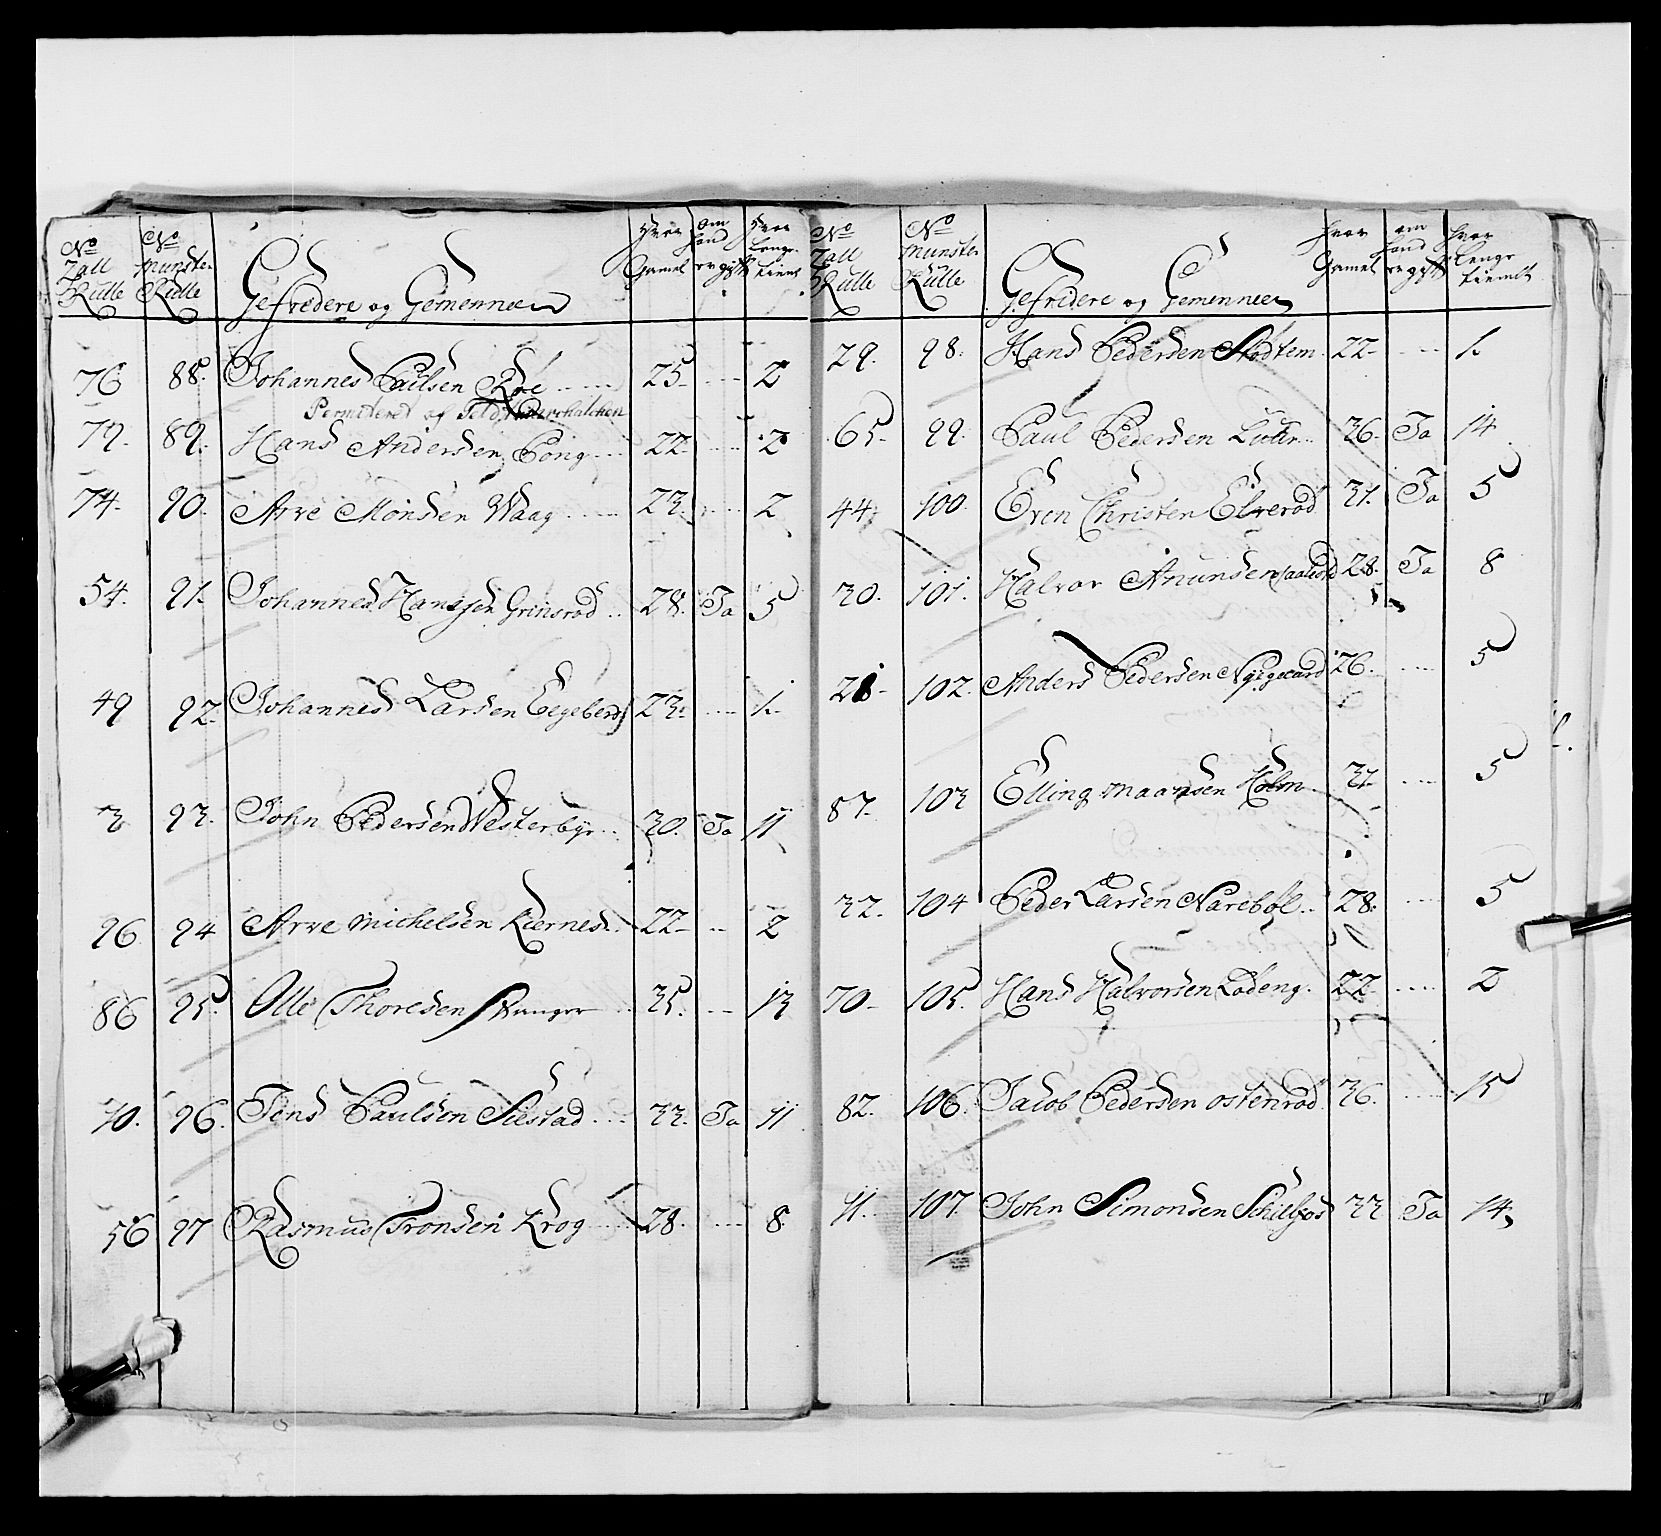 No Zall Rulle No Munster Rulle Gefredere og Gemenneer Hvor Gamel om hand er gift Hvor lenge tient
76 88. Johannes Pailsen Roe 25 2
Permiteret af Feldmarschalchen
79. 89. Hans Andersen Ping 22 2
74. 90. Arve Monsen Waag 23. 2
54. 91. Johannes Hansen Grinsrød 28. Ja 5
49 92 Johannes Larsen Eegeberg 23. 1.
3 93. John Pedersen Westerbye 30. Ja 11
96 94 Arve Michelsen Kiernes 22 2
86 95. Olle Thoresen 35. 13
10. 96. Jens Paulsen Sustad 33. Ja 11
56 97 Rasmus Tronsen Krog 28. 8.
No Zall Rulle No Munster Rulle Gefredere og Gemenneer hvor Gamel om hand er gift hvor lenge tient
29. 98. Hans Pedersen 22 1.
65. 99. Paul Pedersen 36. Ja 14
44. 100. Even Christen Elverød 31. Ja 5
30. 101. Halvor Anunsen 28. Ja 8
28 102. Anders Pedersen Nyegaard 26. 5
87. 103 Elling Maansen Holm 31 5
32. 104 Peder Larsen Narebøl 28. 5
70 105. Hans Halvorsen Lødeng. 22 2
82. 106. Jacob Pedersen ostenrød 36. 15
11. 107. John Simonsen 33 Ja 14